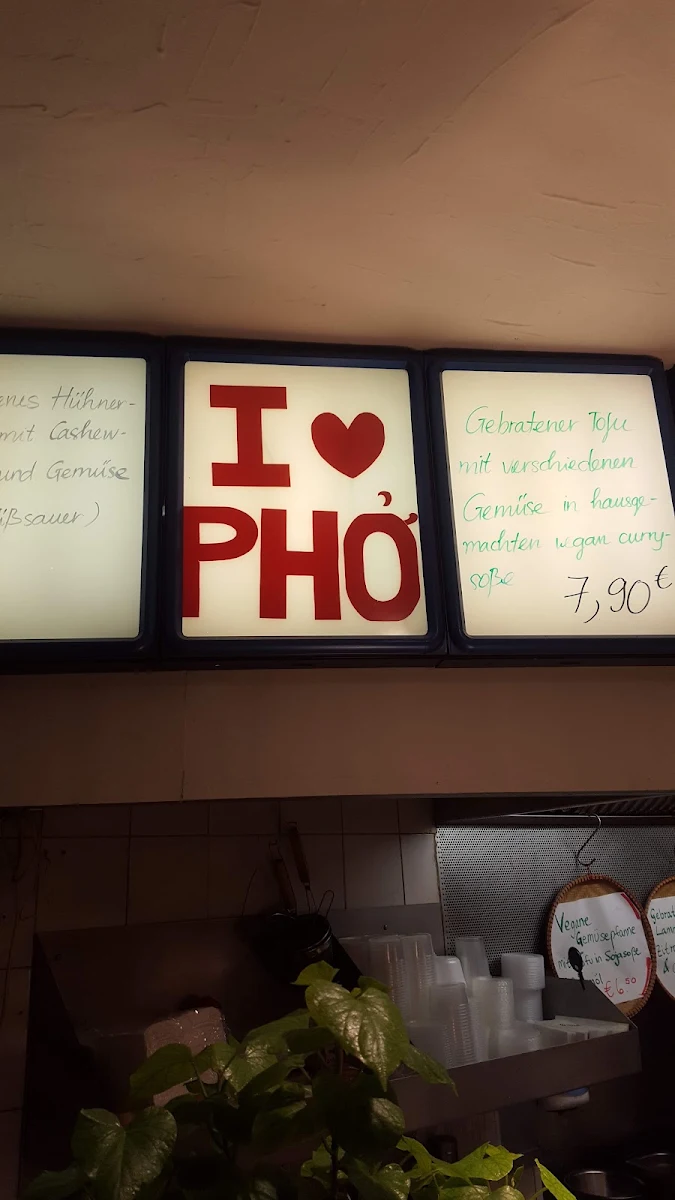 Hühner-
mit Cashew-
und Gemüse
I ♥
PHỞ
Gebratener Tofu
mit verschiedenen
Gemüse in hausge-
machten vegan curry-
soße
7,90€
Vegane
Gemüsepfanne
in Sojasoße
€6,50